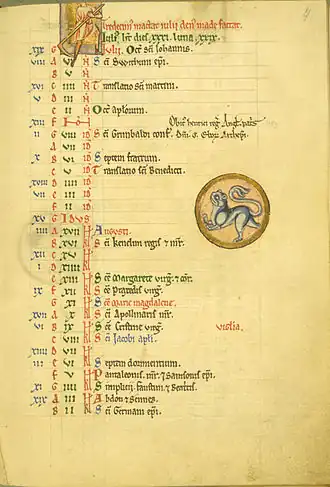 Tredecimus mactat iulii decimus
Iulius. hƷ dies xxxi. luna xxix.
xix G Iulii. Oct̄ sc̄i Iohannis.
viii A VI N S c̄i Swithuni ep̄i.
B V N
xvi C IIII N Translatio sc̄i martini.
v D III N
E II N Oct̄ ap̄lorum.
xiii F Obiit henrici reḡ Angl̄
ii G VIII ID S c̄i Grimbaldi conf̄.
A VII ID
x B VI ID S eptem fratrum.
C V ID T ranslatio sc̄i Benedicti.
xviii D IIII ID
vii E III ID
F II ID
xv G IDUS
iiii A XVII Kl Augusti.
B XVI Kl S c̄i kenelmi regis & m̄r.
xii C XV Kl
i D XIIII Kl
E XIII Kl S c̄e Margarete virḡ.
ix F XII Kl S c̄e Praxedis virḡ.
G XI Kl S c̄e Marie magdalene.
xvii A X Kl S c̄i Apollinaris m̄r.
vi B IX Kl S c̄e Cristine virḡ. vigilia.
C VIII Kl S c̄i Jacobi ap̄li.
xiiii D VII Kl
iii E VI Kl S eptem dormientium.
F V Kl Pantaleonis. m̄r. & Samsonis ep̄i.
xi G IIII Kl S implicii. faustini. &
xix A III Kl A bdon & Sennes.
B II Kl S c̄i Germani ep̄i.